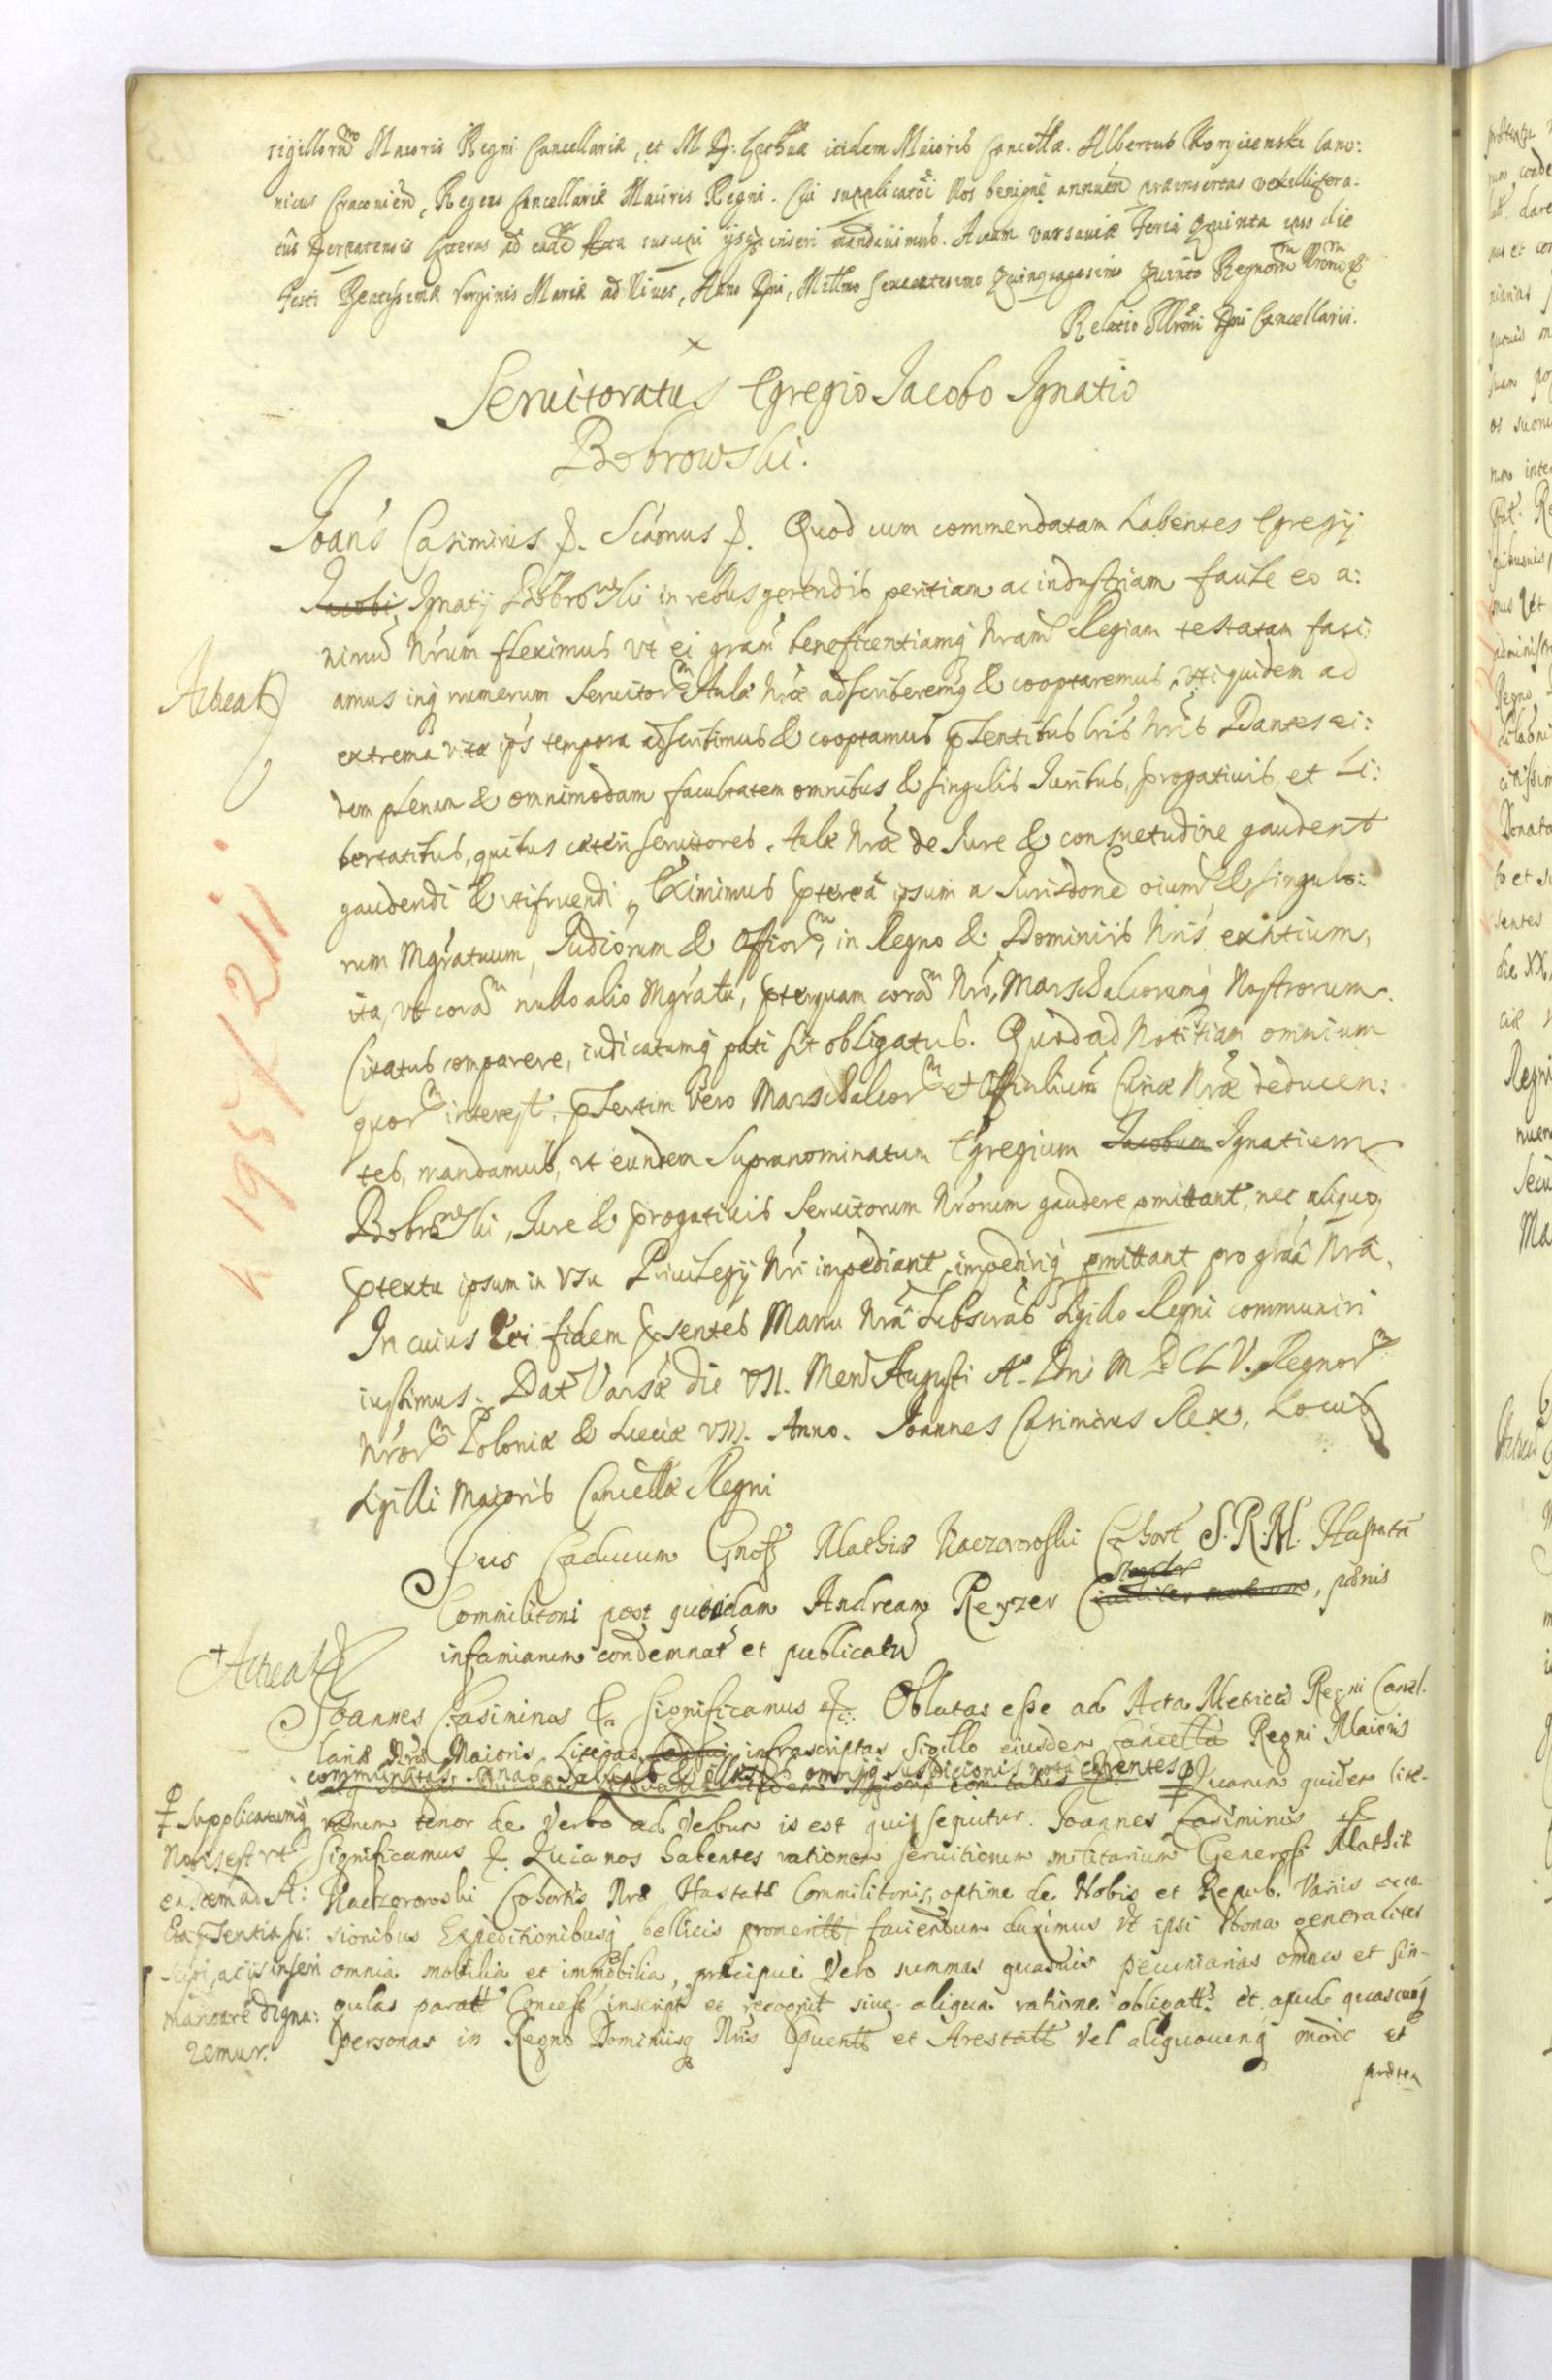 sigillorum Maioris Regni Cancellariæ, et M D: Lithuæ itidem Maioris Cancellæ. Albertus Korycienski Cano:
nicus Cracovien, Regens Cancellariæ Maioris Regni. Cui supplicatōi Nos benigne annuen præinsertas
Pernavensis literas ad eadē Acta suscipi ijsqȝ inseri mandavimus. Actum Varsaviæ Feria Quinta ipso die
Festi Beatissimæ Virginis Mariæ ad Nives, Anno Dni, Millmo Sexcentesimo Quinquagesimo Quinto Regnorū Nrorū &
Relatio Illrmi Dni Cancellarii.
Servitoratus Egregio Jacobo Ignatio
Bobrowski.
Joańs Casimirus &. Scāmus &. Quod cum commendatam habentes Egregij
Jacobi Ignatij Bobrowski in rebus gerendis peritiam ac industriam facile eo a:
nimū Nrum fleximus vt ei grām beneficentiamq Nram Regiam testatam faci:
amus inq numerum Servitorm Aulæ Nræ adscriberemq & cooptaremus, vti quidem ad
Acticat
extrema vitæ ips tempora adscribimus & cooptamus pſentibus lris Nris Dantes ei:
dem plenam & omnimodam facultatem omnibus & singulis Juribus, progativis et Li:
bertatibus, quibus cæteri servitores Aulæ Nræ de Jure & consuetudine gaudent
gaudendi & utifruendi, Eximimus ptereā ipsum a Jurisdone oium & singulo:
rum Mgratuum, Judiciorum & Officiorm, in Regno & Dominiis Nris exntium,
ita, vt corām nullo alio Mgratu, pterquam corām Nro, Marschalcorumq Nostrorum
Citatus comparere, iudicatumq pati sit obligatus. Quod ad Notitiam omnium
quorm interest, pſertim vero Marschalcorm et Officialium Curiæ Nræ deducen:
tes, mandamus, vt eundem Supranominatum Egregium Jacobum Ignatium
Bobrowski, Jure & progativis Servitorum Nrorum gaudere pmittant, nec aliquo
ptextu ipsum in vsu Privilegij Nri impediant, impediriq pmittant pro grāa Nra.
In cuius rei fidem psentes Manu Nra Subscrās Sigillo Regni communiri
iussimus. Dat Varsæ die VII. Mens Augusti A. Dni M DCLV. Regnorm
Nrorm Poloniæ & Sueciæ VII. Anno. Joannes Casimirus Rex, Locus
Sigilli Maioris Cancellæ Regni
h 195/211
Jus Caducum Gnoſ Mathiæ Kaczorowski Cohort S.R.M. Hastatæ
Commilitoni post quendam Andream Reyzer, pœnis
infamiarum condemnat et publicatū
Acticat
Joannes Casimirus & Significamus & Oblatas esse ad Acta Metrices Regni Cancel:
lariæ Nræ Maioris Literas infrascriptas Sigillo eiusdem Cancellæ Regni Maioris
communitas, sanas Salvas & illæsas omniq suspicionis nota carentes Quarum quidem lite-
rarum tenor de Verbo ad Verbum is est qui sequitur. Joannes Casimirus &
Significamus & Quia nos habentes rationem servitiorum militarium Generosi Mathiæ
Kaczorowski Cohortis Nræ Hastatæ Commilitonis, optime de Nobis et Repub. Variis occa-
sionibus Expeditionibusq bellicis promeriti faciendum duximus Vt ipsi bona generaliter
omnia mobilia et immobilia, præcipue Vero summas quasvis pecuniarias omnes et sin-
gulas paratt Concess inscript et recognit sive aliqua ratione obligatt et apud quascunq
personas in Regno Dominiisq Nris et Arestatt Vel aliquovinq modo et
præten
Supplicatumq
Nobis est vt
easdem ad A:
cta pſentia su:
scipi acijs inseri
mandare digna:
remur.